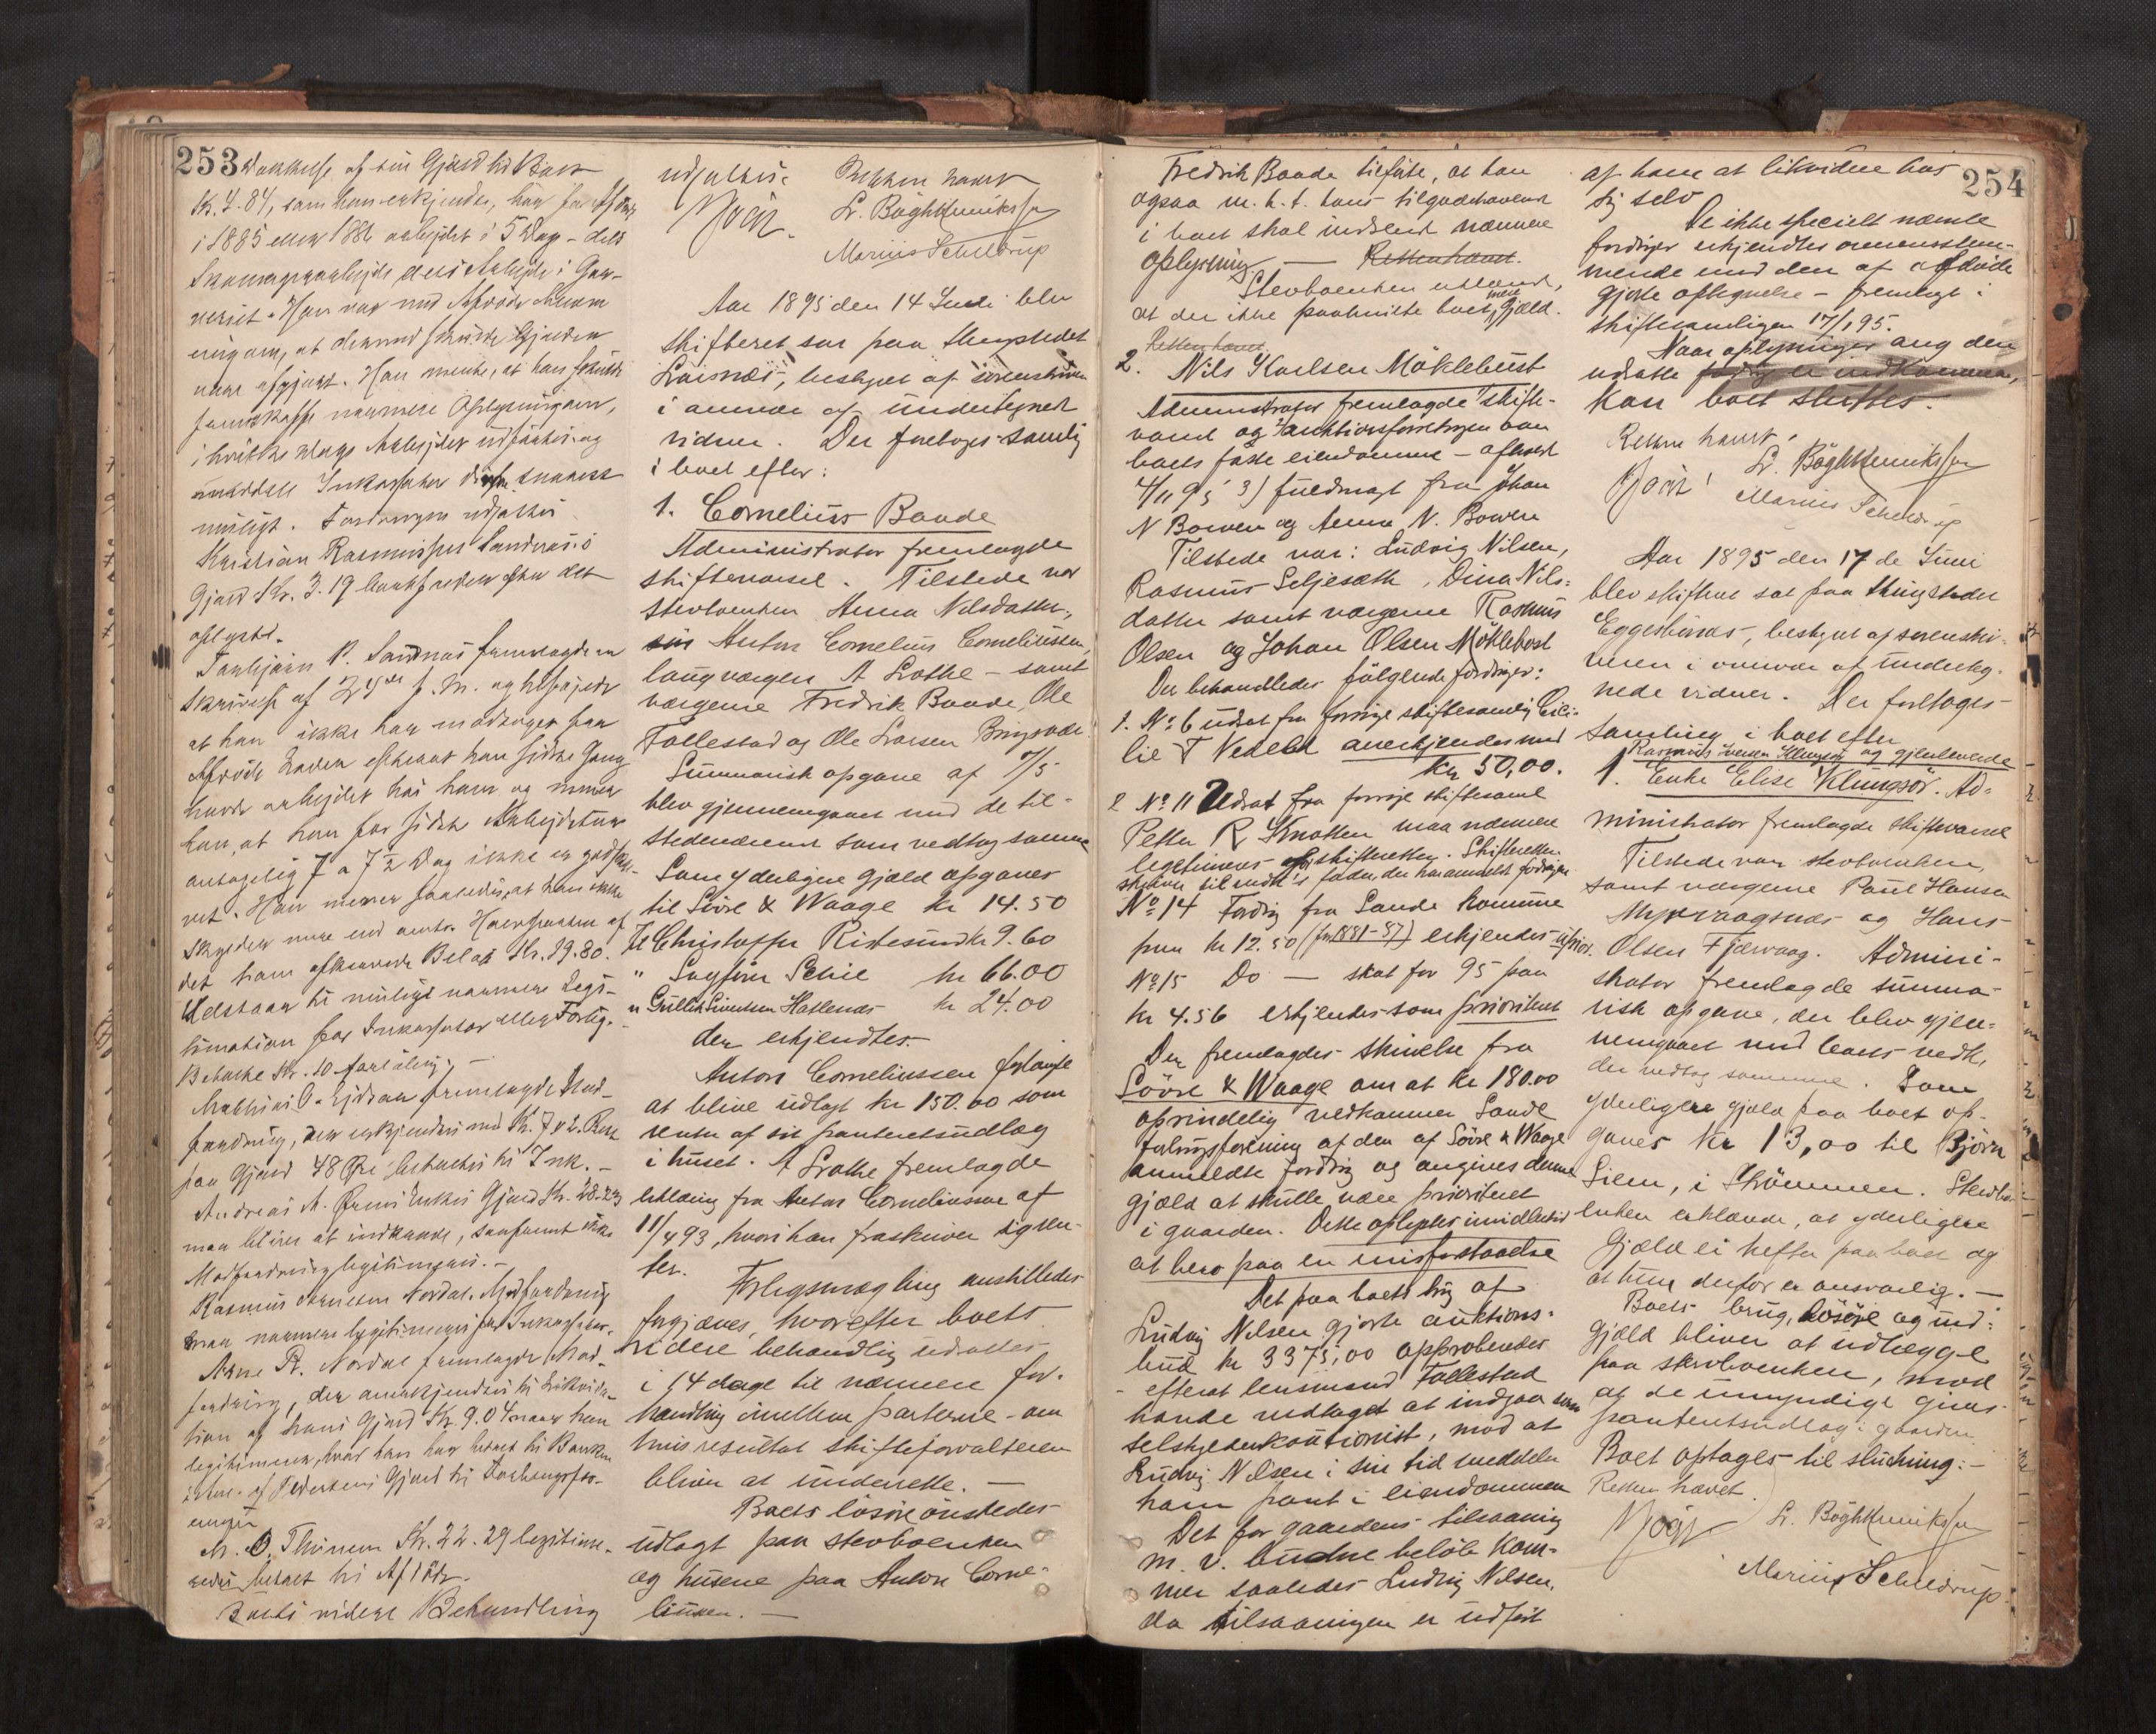 253
af sin Gjæld til Boet
Kr. 4.84, som han erkjender, har for Afdøde
i 1885 eller 1886 arbejdet i 5 Dag - dels
Skomagerarbejde dels Arbejde i Gar-
veriet. Han var med Afdøde
enig om, at dermed skulde Gjælden
være afgjort. Han mente, at han skulde
fremskaffe nærmere Oplysninger,
i hvilke Dage Arbejdet udførtes og
Inkassator
muligt. Fordringen udsattes
Kristian Rasmussen Sandnæs's
Gjæld Kr. 3.19 bortfalder efter det
oplyste.
Torbjørn P. Sandnæs fremlagde en
Skrivelse af f. M. og tilføjede
at han ikke har modtaget fra
Afdøde Læder efterat han sidste Gang
havde arbejdet hos ham og mener
han, at han for sidste Arbejdstur
antagelig 7 a 7½ Dag ikke er godskre-
vet. Han mener saaledes, at han ikke
skylder mere end
det ham afkrævede Beløb Kr. 19.80.
Udstaar til muligt nærmere Legi-
timation fra Inkassator eller Forlig.
Betalte Kr. 10 foreløbig. -
Mathias O. Ejdsaa fremlagde Mod-
fordring, der erkjendtes med Kr. 7.42. Rest
paa Gjæld 48 Øre betaltes til Ink. -
Andreas A. Ørsnes Enkes Gjæld Kr. 28.23
maa blive at indkræve, saafremt ikke
Modfordring legitimeres. -
Rasmus Arnesen Nordal. Modfordring
maa nærmere legitimeres for Inkassator.
Arne R. Nordal fremlagde Mod-
fordring, der anerkjendtes til Likvida-
tion af hans Gjæld Kr. 9.04 naar han
legitimerer, hvad han har betalt til Banken
af Pedersens Gjæld til
A. O. Thunem Kr. 22.29 legitime-
redes betalt til Afdøde.
Boets videre Behandling
udsattes. Retten hævet
L. Bøgh Henrikssen
Marius Scheldrup
Aar 1895 den 14 Juni blev
skifteret sat paa thingstedet
Larsnæs, beskyet af sorenskriveren
i overvær af undertegnede
vidner. Der foretoges samling
i boet efter:
1. Cornelius Baade
Administrator fremlagde
skiftevarsel. Tilstede var
stervboenken Anna Nilsdatter,
søn Anton Cornelius Corneliussen,
laugværgen A Lothe - samt
værgerne Fredrik Baade, Ole
Follestad og Ole Larsen Bringsvor.
Summarisk opgave af 7/5
blev gjennemgaaet med de til-
stedeværende som vedtog samme
Som yderligere gjæld opgaves
til Sövde & Waage kr 14.50
Til Christoffer Ristesund kr 9.60
" kr 66.00
" Gullik Sivertsen Hatlenæs kr 24.00
der erkjendtes.
Anton Corneliussen forlangte
at blive udlagt kr 150.00 som
renter af sit panteretsudlæg
i huset. A Lothe fremlagde
erklæring fra Anton Corneliussen af
11/4 93, hvori han fraskriver sig ren-
ter. Forligsmægling anstilledes
forgjæves, hvorefter boets
videre behandling udsattes
i 14 dage til nærmere for-
handling imellem parterne - om
hvis resultat skifteforvalteren
bliver at underrette. -
Boets lösöre ønskedes
udlagt paa stervboenken
og husene paa Anton Corne-
liussen. -
254
Fredrik Baade tilføiede, at han
ogsaa m. h. t. hans tilgodehavende
i boet skal indsende nærmere
oplysning. - Retten hævet.
Stervboenken udtalte,
at der ikke paahvilte boet mere Gjæld.
Retten hævet
2. Nils Karlsen Möklebust
Administrator fremlagde skifte-
varsel og auktionsforretning over
boets faste eiendomme - afholdt
4/11 95 3) fuldmagt fra Johan
N Bowen og Anna N. Bowen
Tilstede var: Ludvig Nilsen,
Rasmus Seljesæth, Dina Nils-
datter samt værgerne Rasmus
Olsen og Johan Olsen Möklebost
Der behandledes fölgende fordringer:
1. No 6 udsat fra forrige skiftesamling Cici-
lie T Vedeld anerkjendes med
kr 50,00.
2 No 11 Udsat fra forrige skiftesaml
Petter R Knotten maa nærmere
legitimeres for skifteretten. Skifteretten
skriver til vedk's fader, der har anmeldt fordringen
No 14 Fordring fra Sande Kommune
paa kr 12.50 (for 1881-87) erkjendes uprior.
No 15 Do - skat for 95 paa
kr 4.56 erkjendes som prioriteret
Der fremlagdes skrivelse fra
Sövde & Waage om at kr 180.00
oprindelig vedkommer Sande
forbrugsforening af den af Sövde & Waage
anmeldte fordring og angives denne
gjæld at skulle være prioriteret
i gaarden. Dette oplystes imidlertid
at bero paa en misforstaaelse
Det paa boets brug af
Ludvig Nilsen gjorte auktions-
bud kr 3375,00 approberedes
- efterat lensmand Follestad
havde vedtaget at indgaa som
selvskyldnerkautionist, mod at
Ludvig Nilsen i sin tid meddeler
ham pant i eiendommen
Det for gaardens tilsaaning
m. v. budne belöb kom-
mer saaledes Ludvig Nilsen,
da tilsaaningen er udfört
af ham at likvidere hos
sig selv
De ikke specielt nævnte
fordringer erkjendtes overensstem-
mende med den af afdöde
gjorte optegnelse - fremlagt i
skiftesamlingen 17/1 95.
Naar oplysninger ang den
udsatte fordring er indkommen,
kan boet sluttes.
Retten hævet.
L. Bøgh Henrikssen
Marius Scheldrup
Aar 1895 den 17 de Juni
blev skifteret sat paa thingstedet
Eggesbönæs, beskyet af sorenskri-
veren i overvær af underteg-
nede vidner. Der foretoges
samling i boet efter
Rasmus Iversen Klungsör og gjenlevende
1. Enke Elise Klungsör. Ad-
ministrator fremlagde skiftevarsel
Tilstede var stervboenken,
samt værgerne Paul Hansen
Myrvaagsnæs og Hans
Olsen Fjærvaag. Admini-
strator fremlagde summa-
risk opgave, der blev gjen-
nemgaaet med boets vedk,
der vedtog samme. Som
yderligere gjæld paa boet op-
gaves kr 13,00 til Björn
Silen, i Strömmen. Stervbo-
enken erklærede, at yderligere
Gjæld ei hefter paa boet og
at hun derfor er ansvarlig. -
Boets brug, lösöre og ud-
gjæld bliver at udlægge
paa stervboenken, mod
at de umyndige gives
panteretsudlæg i gaarden
Boet optages til slutning. -
Retten hævet.
L. Bøgh Henrikssen
Marius Scheldrup.